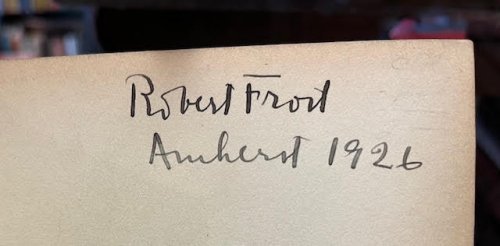 Robert Frost
Amherst 1926